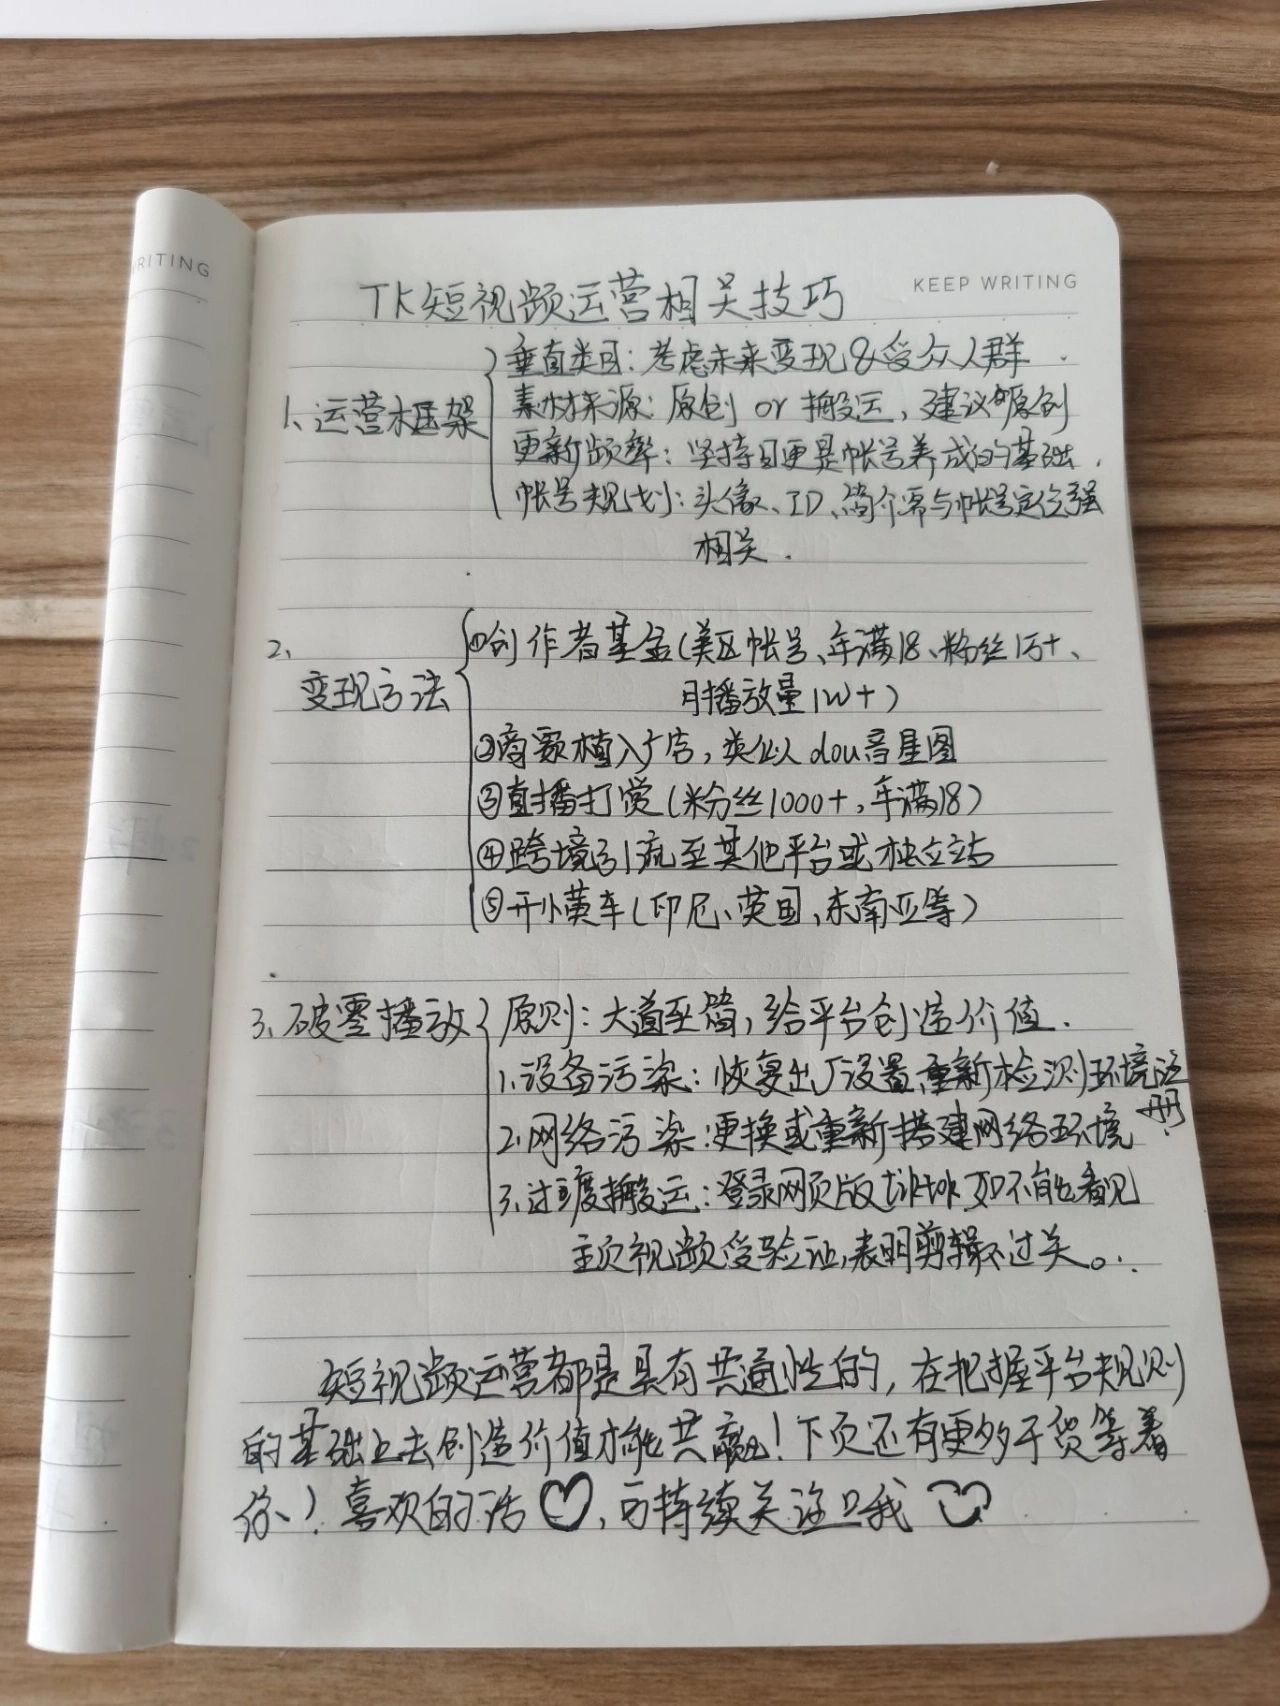 RITING
KEEP WRITING
TK短视频运营相关技巧
1、运营框架
垂直类目：考虑未来变现&受众人群.
素材来源：原创 or 搬运，建议原创
更新频率：坚持日更是帐号养成的基础.
帐号规划：头像、ID、简介需与帐号定位强
相关.
2、
变现方法
①创作者基金(美区帐号、年满18、粉丝1万+、
月播放量1W+)
②商家植入广告，类似 dou音星图
③直播打赏(粉丝1000+，年满18)
④跨境引流至其他平台或独立站
⑤开小黄车(印尼、英国、东南亚等)
3、破零播放
原则：大道至简，给平台创造价值.
1.设备污染：恢复出厂设置重新检测环境注册.
2.网络污染：更换或重新搭建网络环境
3.过度搬运：登录网页版tiktok如不能看见
主页视频受验证，表明剪辑不过关。
短视频运营都是具有共通性的，在把握平台规则
的基础上去创造价值才能共赢！下页还有更多干货等着
你！喜欢的话♡，可持续关注我